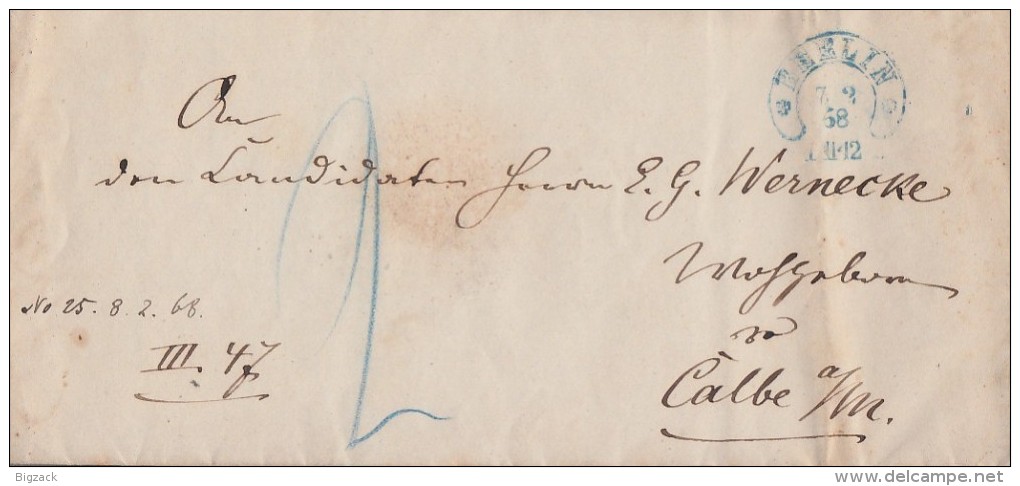 BERLIN
7 2
68
11-12
An
den Candidaten Herrn E. G. Wernecke
Wohlgeboren
zu
Calbe a/M.
No 25. 8. 2. 68.
III. 47
2
Bigzack
www.delcampe.net